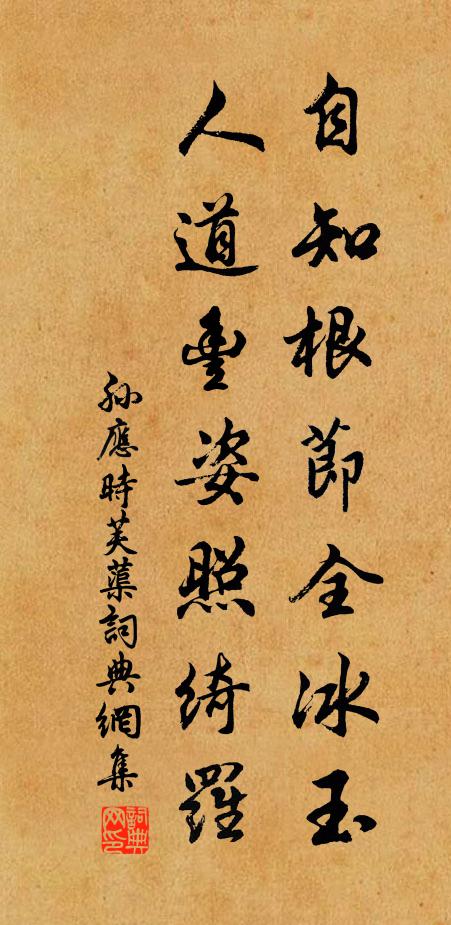 自知根莭全冰玉
人道豐姿照綺羅
孫應時芙蕖詞典網集
詞典网印